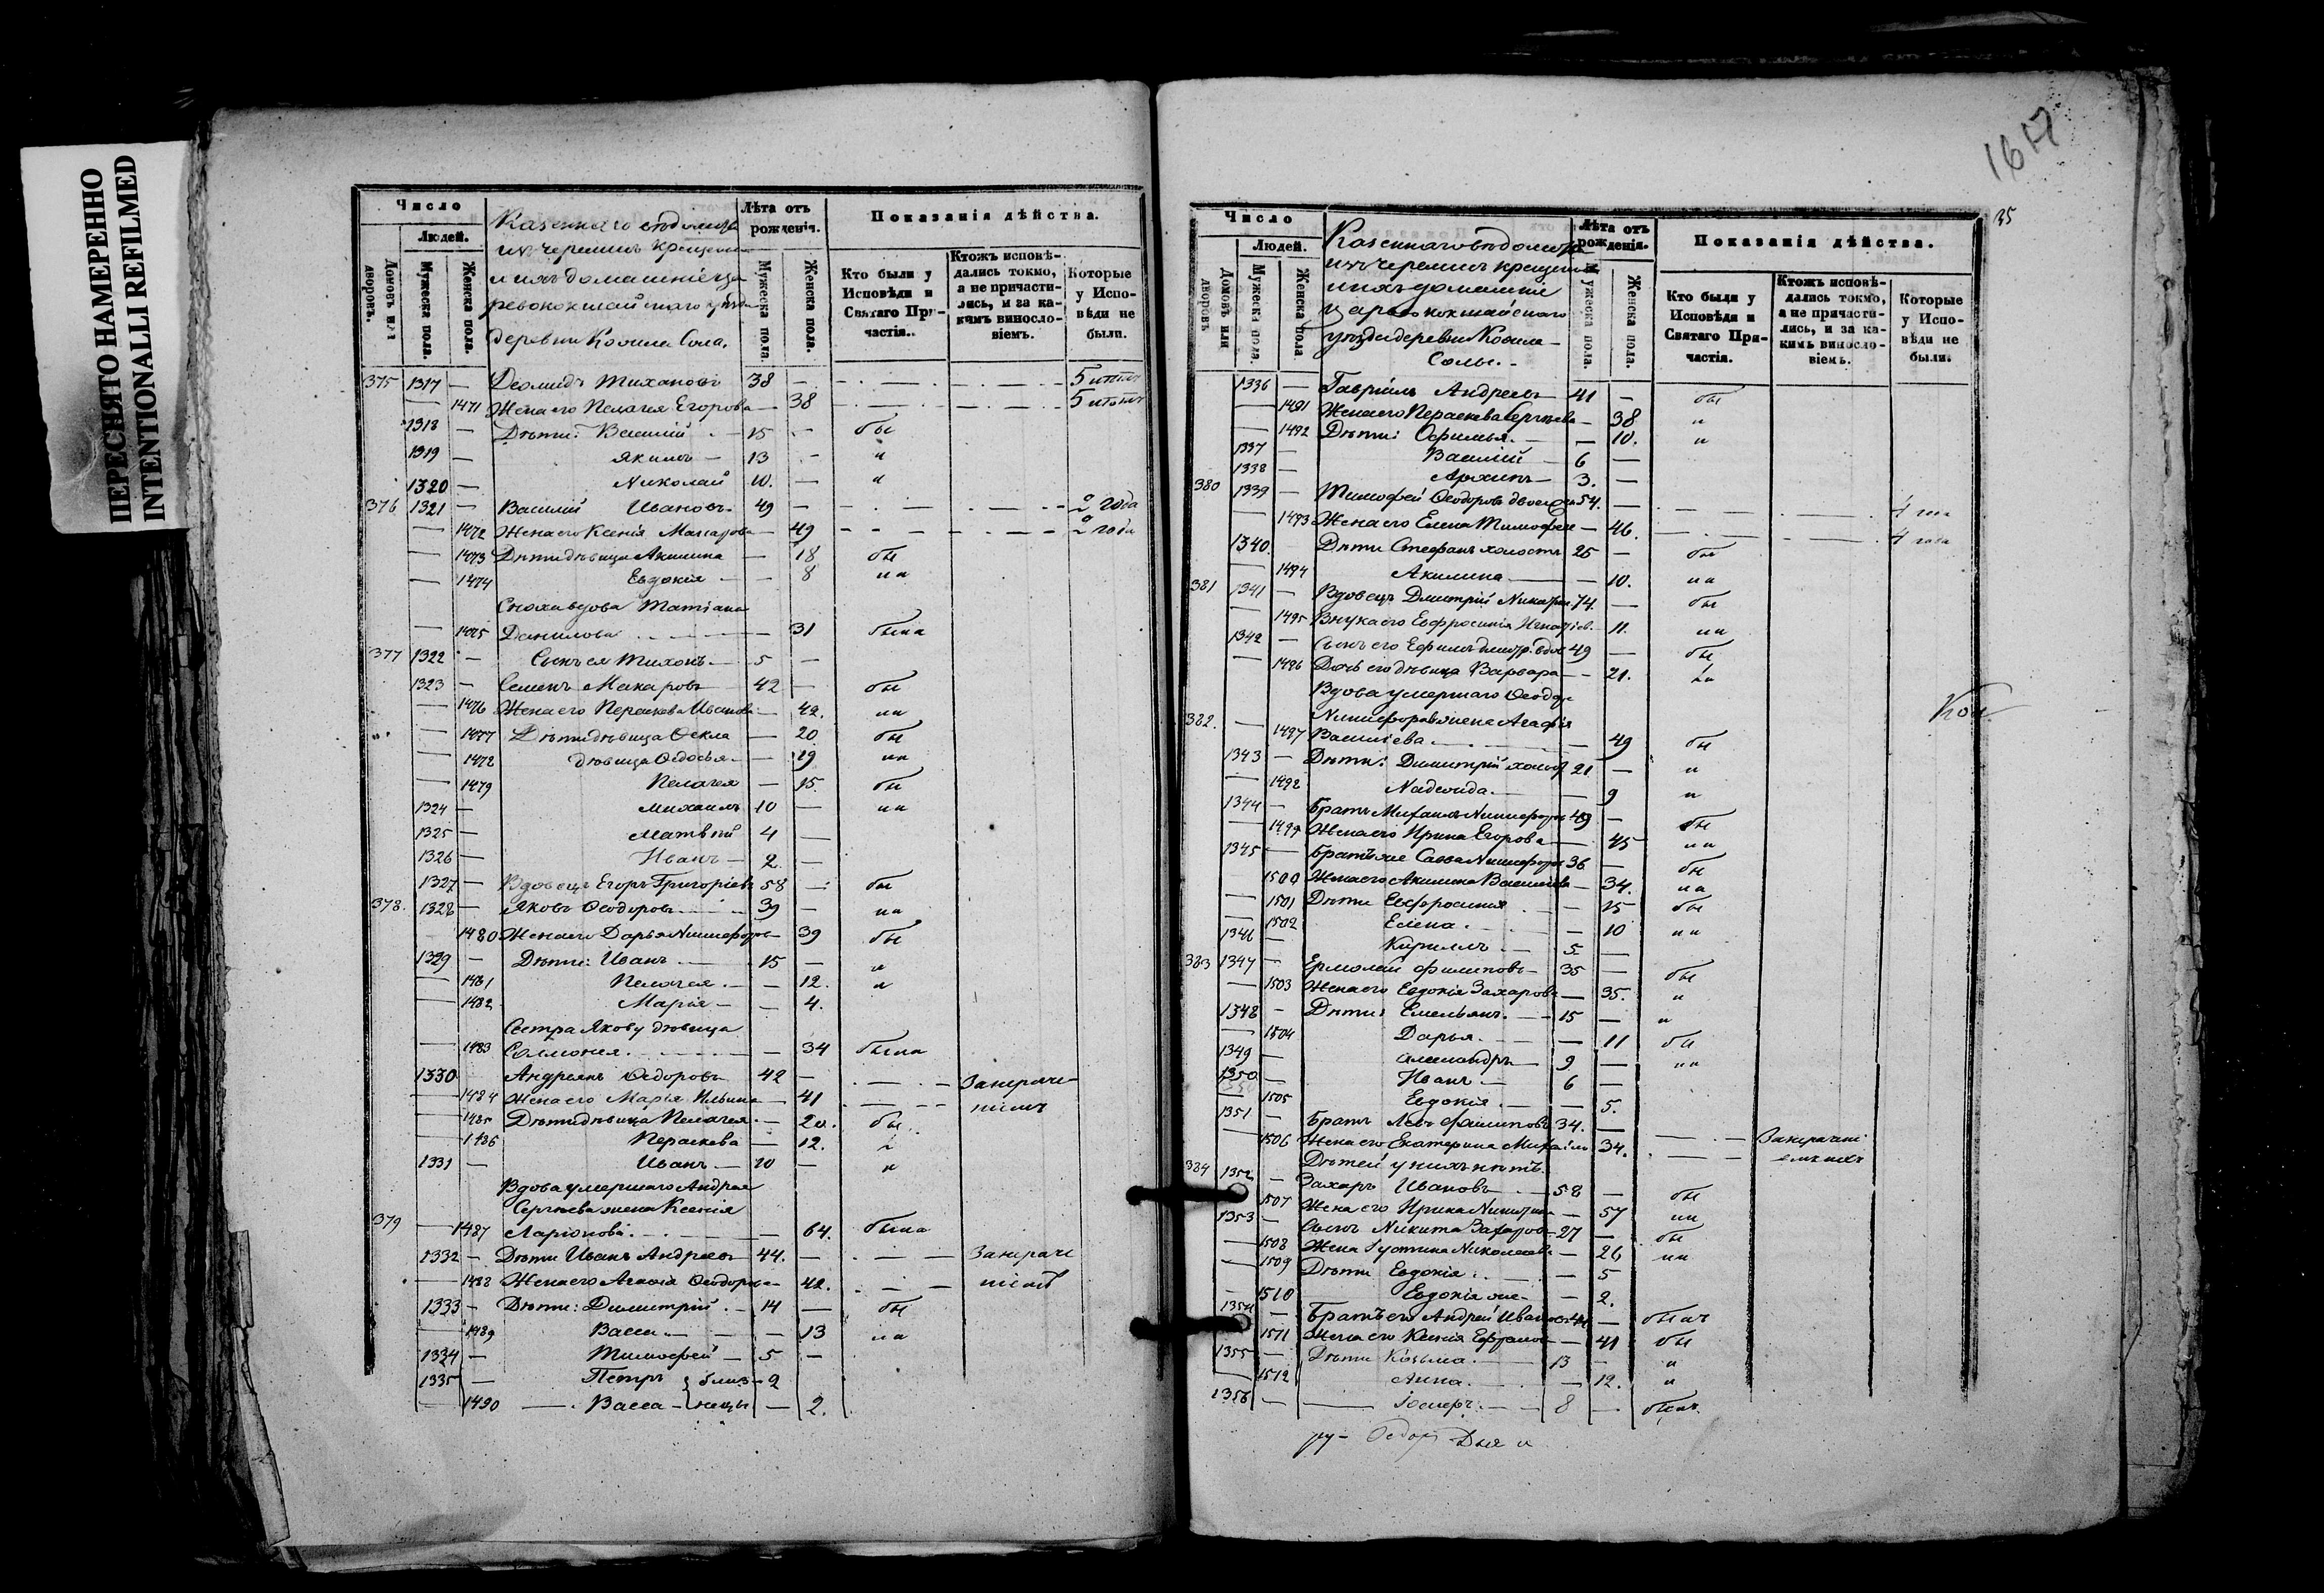 ПЕРЕСНЯТО НАМЕРЕННО
INTENTIONALLI REFILMED
Число
Людей.
Домовъ или дворовъ.
Мужеска пола.
Женска пола.
Казеннаго вѣдомства
изъ черемисъ крещены
и ихъ домашніе Ца
ревококшайскаго уѣзда
деревни Кожла Сола.
Лѣта отъ рожденія.
Мужеска пола.
Женска пола.
Показанія дѣйства.
Кто были у Исповѣди и Святаго При-частія.
Ктожъ исповѣ-дались токмо, а не причасти-лись, и за ка-кимъ винослo-віемъ.
Которые у Испо-вѣди не были.
375 1317 — Диомидъ Тихановъ 38 — 5 лѣтъ
— 1471 Жена его Пелагея Егорова — 38 5 лѣтъ
1318 — Дѣти: Василий 15 — бы
1319 — Якимъ — 13 — и
1320 — Николай 10. — и
376 1321 — Василий Ивановъ 49 — 2 года
— 1472 Жена его Ксенія Макарова — 49 2 года
— 1473 Дѣти дѣвица Акилина — 18 бы
— 1474 Евдокія — 8 ли
Сноха вдова Татіана
— 1475 Данилова — 31 была
377 1322 — Сынъ ея Тихонъ — 5 —
1323 — Семенъ Макаровъ 42 — бы
— 1476 Жена его Параскева Иванова — 42. ли
— 1477 Дѣти дѣвица Ѳекла — 20 бы
— 1478 дѣвица Ѳедосья — 19 ли
— 1479 Пелагея — 15. бы
1324 — Михаилъ 10 — ли
1325 — Матвѣй 4 —
1326 — Иванъ — 2 —
1327 — Вдовецъ Егоръ Григоріевъ 58 — бы
378. 1328 — Яковъ Ѳеодоровъ 39 — ли
1480 Жена его Дарья Никифорова 39 бы
1329 — Дѣти: Иванъ 15 — и
— 1481 Пелагея — 12. и
— 1482 Марія — 4.
Сестра Якову дѣвица
— 1483 Саломонія — 34 была
1330 Андреянъ Ѳедоровъ 42 — За непри-
— 1484 Жена его Марья Ильина — 41
— 1485 Дѣти дѣвица Пелагея — 20. бы
— 1486 Параскева — 12.
1331 — Иванъ — 10 — и
Вдова умершаго Андрея
Сергѣева жена Ксенія
379 — 1487 Ларіонова — 64. была
1332 — Дѣти Иванъ Андреевъ 44. —
— 1488 Жена его Агафія Ѳеодорова — 42.
1333 — Дѣти: Димитрій — 14 — бы
— 1489 Васса — — 13 ли
1334 — Тимофей — 5 —
1335 — Петръ } близ — 2
— 1490 — Васса — нецы — 2.
1617
35
Число
Людей.
Домовъ или дворовъ
Мужеска пола.
Женска пола
Казеннаго вѣдомства
изъ черемисъ крещены
и ихъ домашніе
Царевококшайскаго
уѣзда деревни Кожла—
Солы.
Лѣта отъ рожденія.
Мужеска пола.
Женска пола.
Показанія дѣйства.
Кто были у Исповѣди и Святаго При-частія.
Ктожъ исповѣ-дались токмо, а не причасти-лись, и за ка-кимъ винослo-віемъ.
Которые у Испо-вѣди не были.
1336 — Гавріилъ Андреевъ 41 — бы
— 1491 Жена его Параскева Сергѣева — 38 и
— 1492 Дѣти: Ѳофимья — 10. и
1337 — Василий — 6 —
1338 — Архипъ — 3. —
380 1339 — Тимофей Ѳеодоровъ 54. —
— 1493 Жена его Елена Тимофее — 46. 4 года
1340 Дѣти Стефанъ холостъ 25 — бы
— 1494 Акилина — 10. ли
381 1341 — Вдовецъ Димитрій 74. — бы
— 1495 Внука его Евфросинія Игнатіев. 11. ли
1342 — Сынъ его Ефимъ Дмитр. вдов 49 — бы
— 1496 Дочь его дѣвица Варвара — 21. ла
Вдова умершаго Ѳеодора
Никифорова жена Агафія
382. — 1497 Василіева — 49 бы
1343 — Дѣти: Димитрій холост 21 — и
— 1498 Надежда — 9 и
1344 — Братъ Михаилъ Никифоровъ 49 — бы
— 1499 Жена его Ирина Егорова — 45 ли
1345 — Братъ же Савва Никифоровъ 36 — бы
1500 Жена его Акилина Василіева — 34. ла
— 1501 Дѣти Евфросинія — 15 бы
— 1502 Елена — 10 ли
1346 — Кириллъ — 5 —
383 1347 — Ермолай Филиповъ 35 — бы
— 1503 Жена его Евдокія Захарова — 35. и
1348 — Дѣти: Емельянъ — 15 — и
— 1504 Дарья — 11 бы
1349 — Александръ 9 — ли
1350 — Иванъ — 6 —
— 1505 Евдокія — 5.
1351 — Братъ Левъ Филиповъ 34. —
— 1506 Жена его Екатерина Михайлов 34.
Дѣтей у нихъ нѣтъ.
384 1352 — Захаръ Ивановъ — 58 — бы
— 1507 Жена его Ирина Никитина — 57 ли
1353 — Сынъ Никита Захаровъ 27 — бы
— 1508 Жена Іустина Николаева — 26 ли
— 1509 Дѣти Евдокія — 5
— 1510 Евдокія же — 2.
1354 — Братъ его Андрей Ивановъ 44 — былъ
— 1511 Жена его Ксенія Ефремова — 41 бы
1355 — Дѣти Козьма — 13 — и
— 1512 Анна — 12. и
1356 — Іосифъ — 8 — былъ